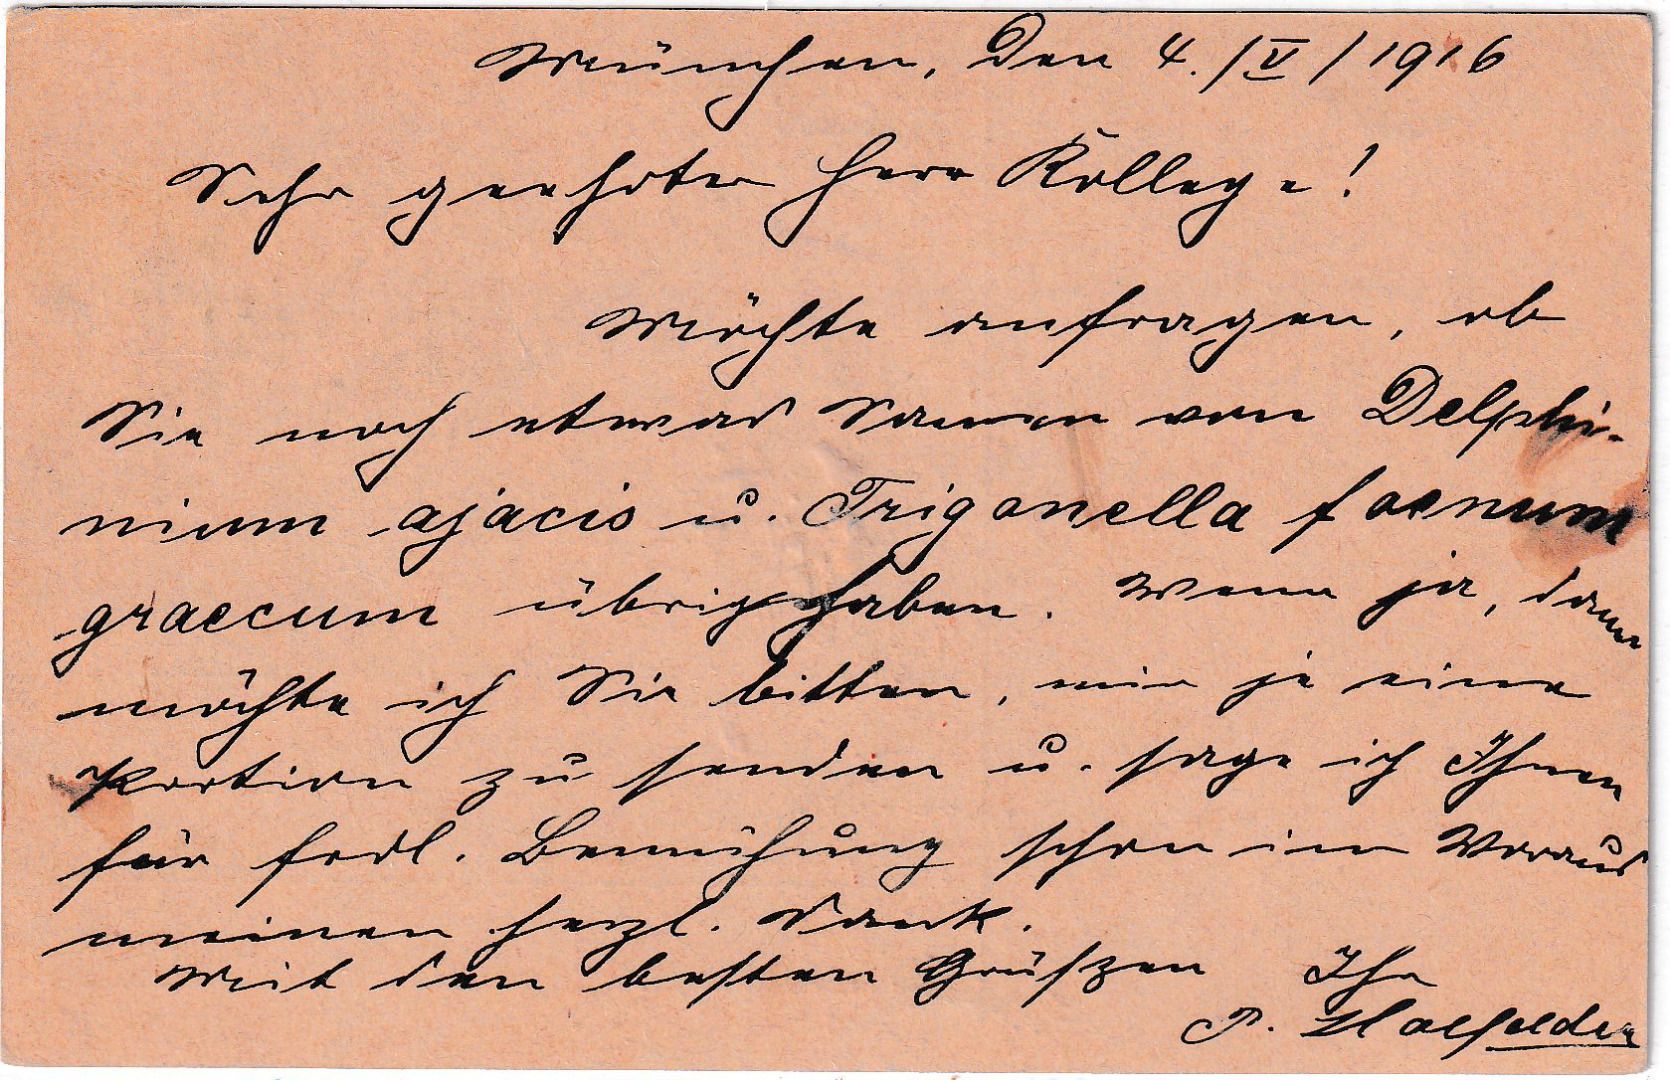 München, den 4./V/1916
Sehr geehrter Herr Kollege!
Möchte anfragen, ob
Sie noch etwas Samen von Delphi-
nium ajacis u. Trigonella foenum
graecum übrig haben. Wenn ja, dann
möchte ich Sie bitten, mir je eine
Portion zu senden u. sage ich Ihnen
für frdl. Bemühung schon im Voraus
meinen herzl. Dank.
Mit den besten Grüßen Ihr
P.